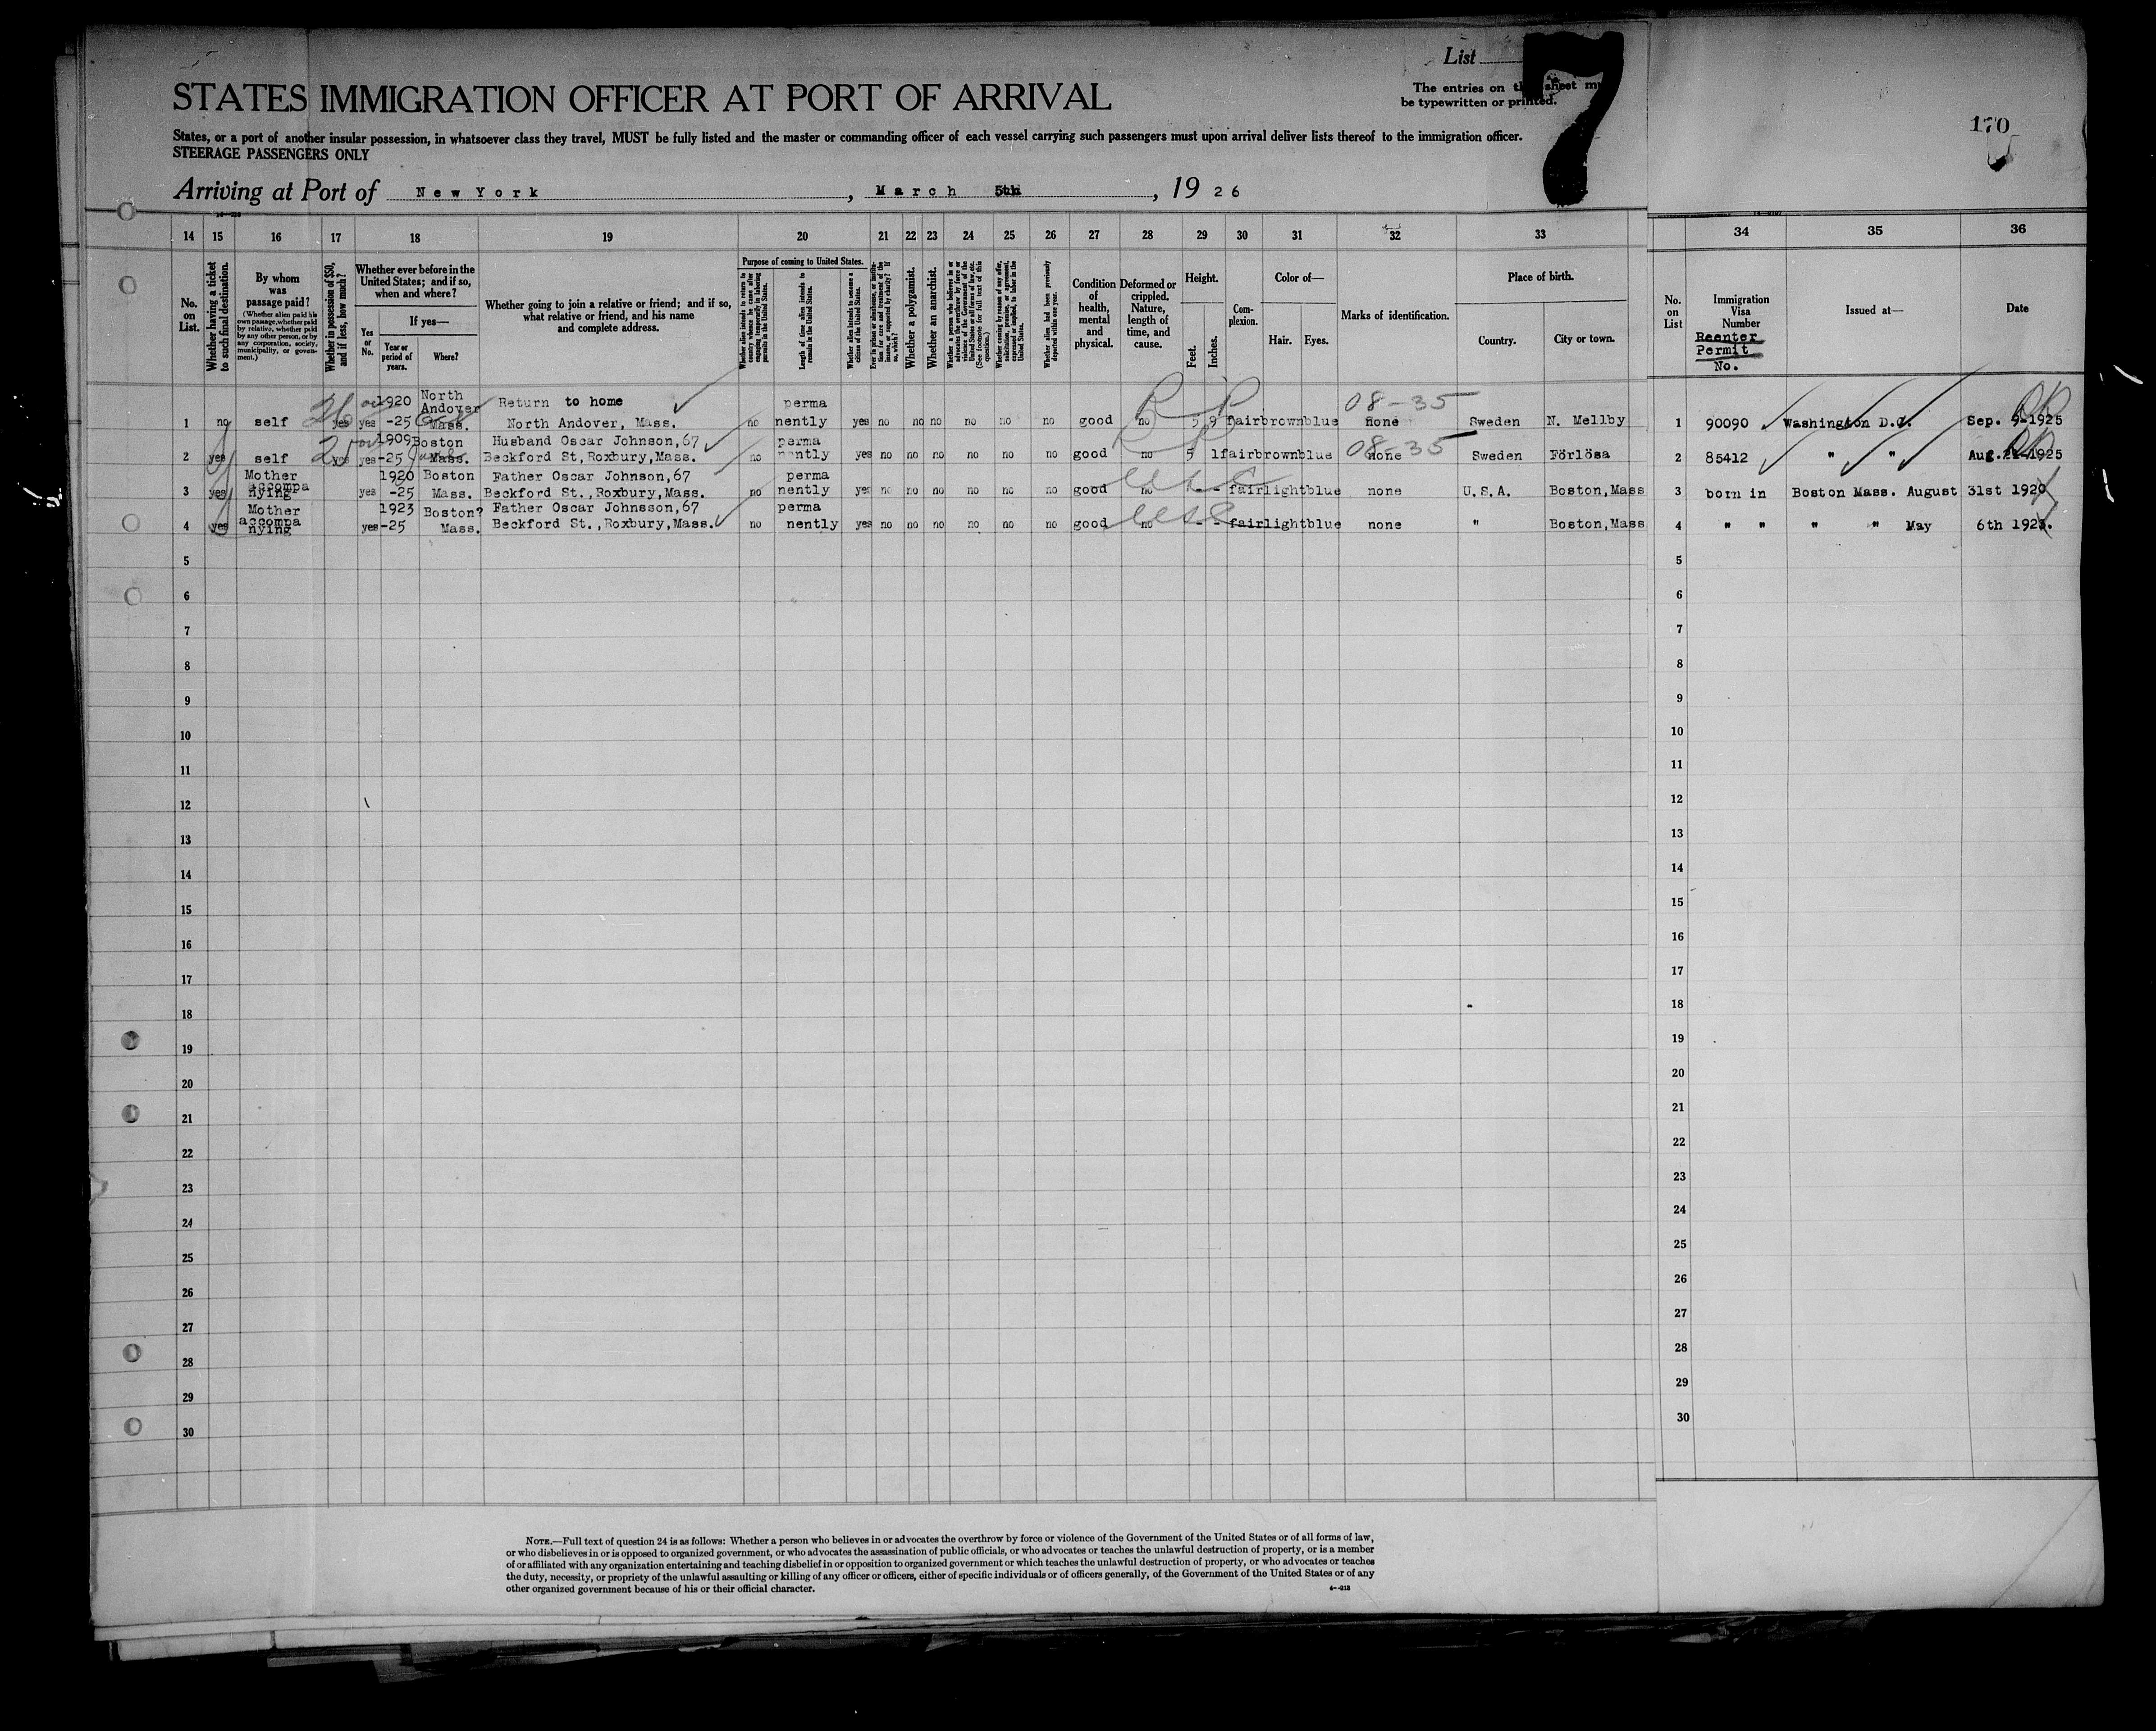 List
7
The entries on this sheet must
be typewritten or printed.
170
STATES IMMIGRATION OFFICER AT PORT OF ARRIVAL
States, or a port of another insular possession, in whatsoever class they travel, MUST be fully listed and the master or commanding officer of each vessel carrying such passengers must upon arrival deliver lists thereof to the immigration officer.
STEERAGE PASSENGERS ONLY
Arriving at Port of New York, March 5th, 1926
14 15 16 17 18 19 20 21 22 23 24 25 26 27 28 29 30 31 32 33 34 35 36
No. on List.
Whether having a ticket to such final destination.
By whom was passage paid?
(Whether alien paid his own passage, whether paid by relative, whether paid by any other person, or by any corporation, society, municipality, or government.)
Whether in possession of $50, and if less, how much?
Whether ever before in the United States; and if so, when and where?
Yes or No.
If yes—
Year or period of years.
Where?
Whether going to join a relative or friend; and if so, what relative or friend, and his name and complete address.
Purpose of coming to United States.
Whether alien intends to return to country whence he came after engaging temporarily in laboring pursuits in the United States.
Length of time alien intends to remain in the United States.
Whether alien intends to become a citizen of the United States.
Whether a polygamist.
Whether an anarchist.
Whether alien had been previously deported within one year.
Condition of health, mental and physical.
Deformed or crippled. Nature, length of time, and cause.
Height.
Feet.
Inches.
Complexion.
Color of—
Hair.
Eyes.
Marks of identification.
Place of birth.
Country.
City or town.
No. on List
Immigration Visa Number
Reenter
Permit
No.
Issued at—
Date
1 no self yes yes 1920 -25 North Andover Mass. Return to home North Andover, Mass. no permanently yes no no no no no no good no 5 9 fair brown blue none 08-35 Sweden N. Mellby 1 90090 Washington D.C. Sep. 9-1925
2 yes self yes yes 1909 -25 Boston Mass. Husband Oscar Johnson, 67 Beckford St, Roxbury, Mass. no permanently yes no no no no no no good no 5 1 fair brown blue none 08-35 Sweden Förlösa 2 85412 " " Aug. 1925
3 yes Mother accompanying yes 1920 -25 Boston Mass. Father Oscar Johnson, 67 Beckford St., Roxbury, Mass. no permanently yes no no no no no no good no USC - - fair light blue none U.S.A. Boston, Mass 3 born in Boston Mass. August 31st 1920
4 yes Mother accompanying yes 1923 -25 Boston? Mass. Father Oscar Johnsson, 67 Beckford St., Roxbury, Mass. no permanently yes no no no no no no good no USC - - fair light blue none " Boston, Mass 4 " " " " May 6th 1923.
5 5
6 6
7 7
8 8
9 9
10 10
11 11
12 12
13 13
14 14
15 15
16 16
17 17
18 18
19 19
20 20
21 21
22 22
23 23
24 24
25 25
26 26
27 27
28 28
29 29
30 30
NOTE.—Full text of question 24 is as follows: Whether a person who believes in or advocates the overthrow by force or violence of the Government of the United States or of all forms of law,
or who disbelieves in or is opposed to organized government, or who advocates the assassination of public officials, or who advocates or teaches the unlawful destruction of property, or is a member
of or affiliated with any organization entertaining and teaching disbelief in or opposition to organized government or which teaches the unlawful destruction of property, or who advocates or teaches
the duty, necessity, or propriety of the unlawful assaulting or killing of any officer or officers, either of specific individuals or of officers generally, of the Government of the United States or of any
other organized government because of his or their official character.